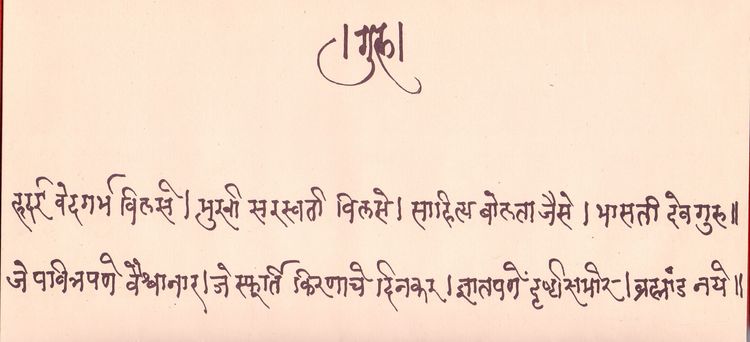 । गुरू।
ह्रदई वेदगर्भ विलसे। मुखी सरस्वती विलसे। साहित्य बोलता जैसे । भासती देवगुरू॥
जे पवित्रपणे वैश्वानार। जे स्फूर्ति किरणाचे दिनकर। ज्ञातपणें दृष्टीसमोर। ब्रह्मांड नये॥